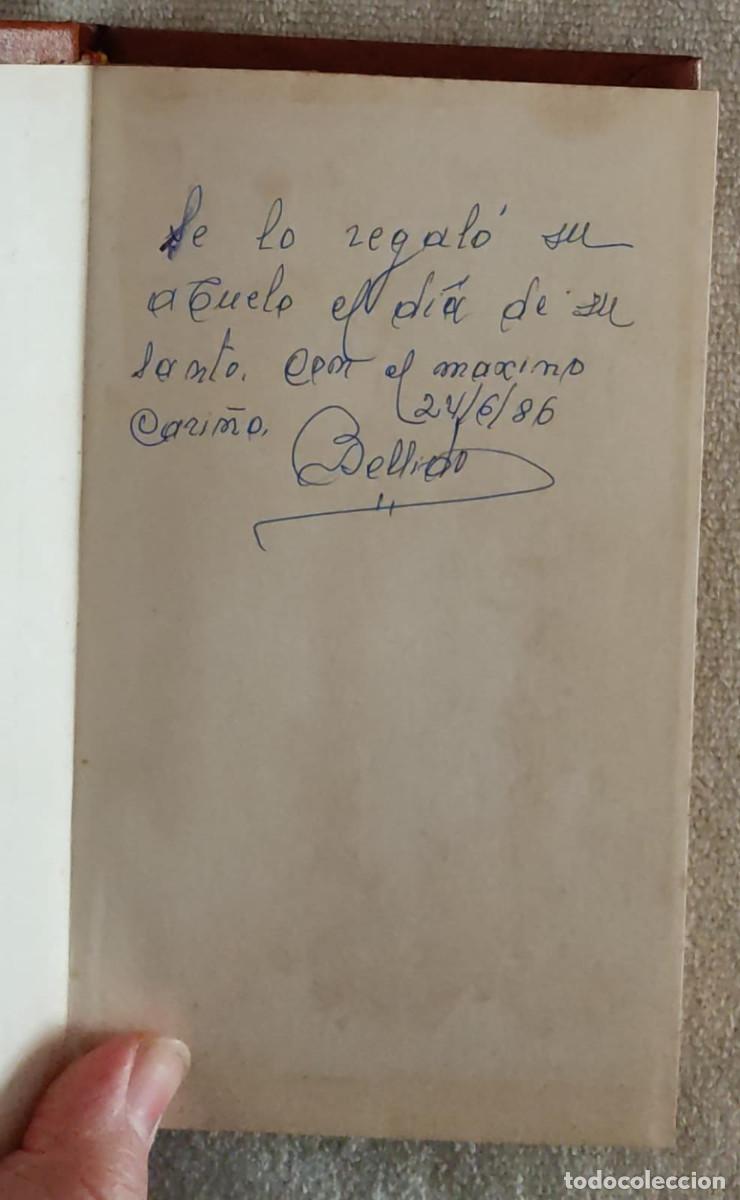 Se lo regaló su
abuelo el día de su
santo. Con el maximo
Cariño. 24/6/86
Bellido
todocoleccion